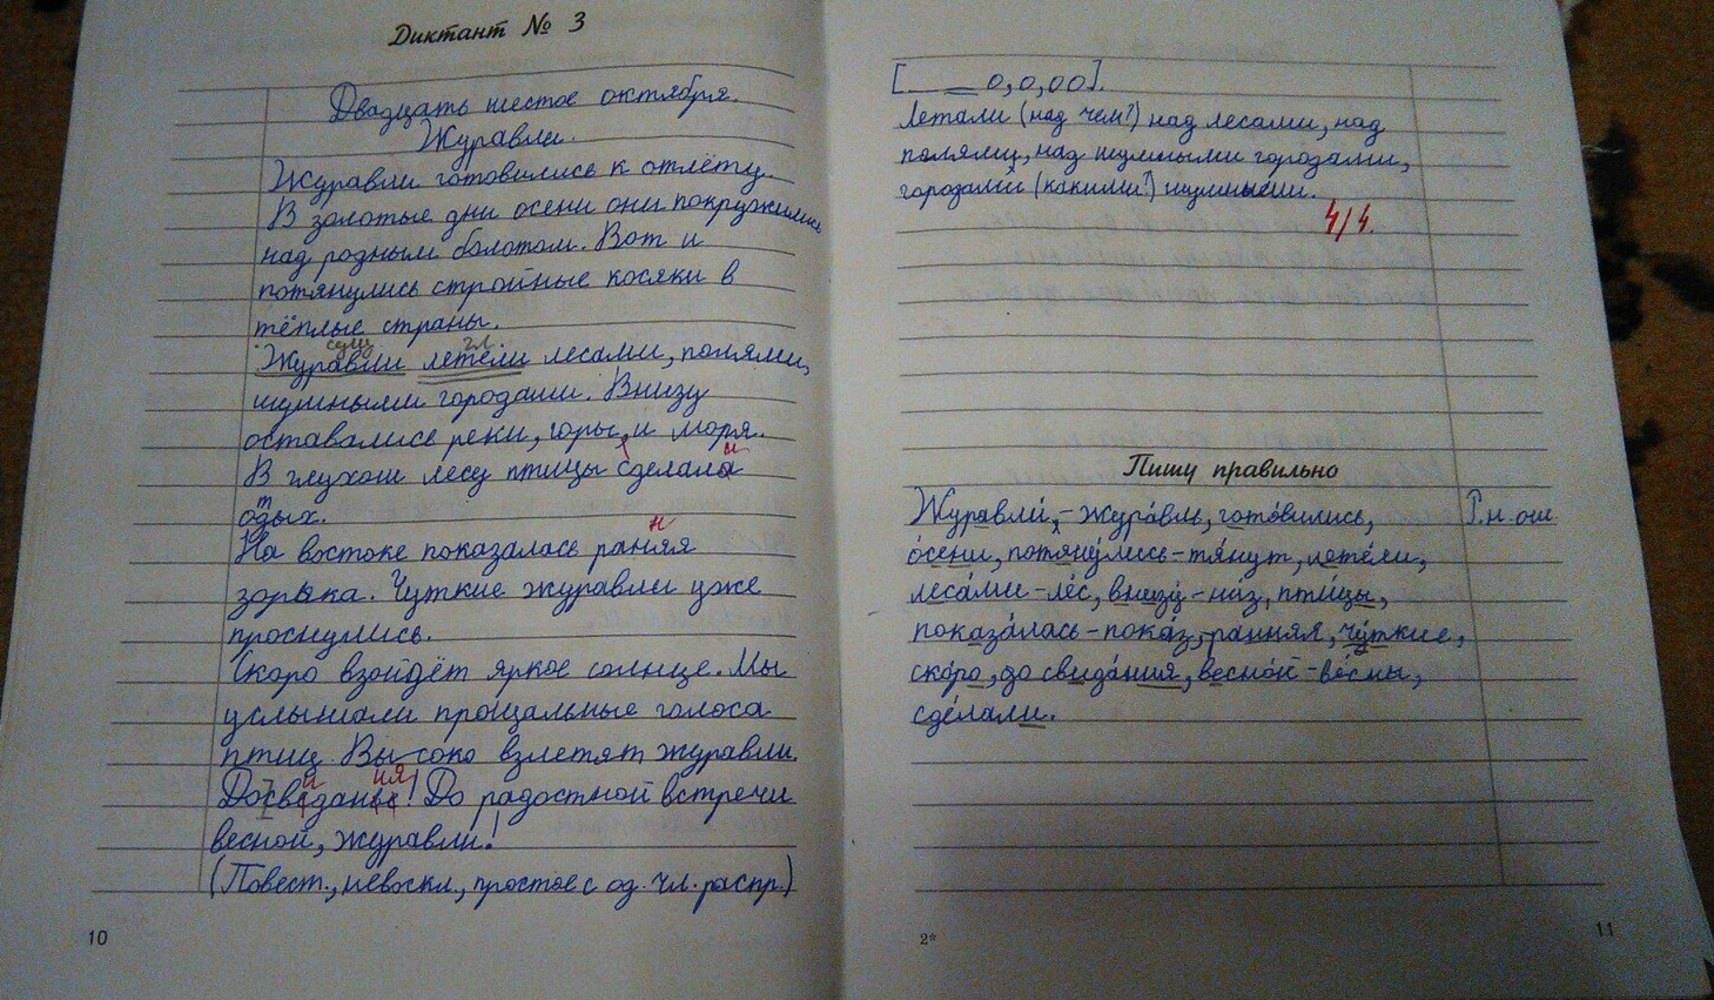 Диктант № 3
Двадцать шестое октября.
Журавли.
Журавли готовились к отлёту.
В золотые дни осени они покружились
над родным болотом. Вот и
потянулись стройные косяки в
тёплые страны.
сущ. гл.
Журавли летели лесами, полями,
шумными городами. Внизу
оставались реки, горы, и моря.
и
В глухом лесу птицы сделала
т
одых.
н
На востоке показалась раняя
зорька. Чуткие журавли уже
проснулись.
Скоро взойдёт яркое солнце. Мы
услышали прощальные голоса
птиц. Высоко взлетят журавли.
и ия
До сведанье! До радостной встречи
весной, журавли!
(Повест., невоскл., простое с од. чл. распр.)
10
[ О, О, ОО].
Летали (над чем?) над лесами, над
полями, над шумными городами,
городами (какими?) шумными.
4/4.
Пишу правильно
Журавли́, - жура́вль, гото́вились, Р.н. ош.
о́сени, потяну́лись - тя́нут, лете́ли,
леса́ми - ле́с, внизу́ - ни́з, пти́цы,
показа́лась - пока́з, ранняя, чу́ткие,
ско́ро, до свида́ния, весно́й - вёсны,
сде́лали.
2*
11